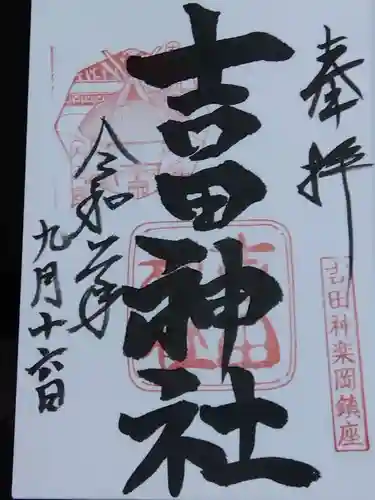 奉拝
吉田神社
令和六年
九月十六日
吉田神楽岡鎮座